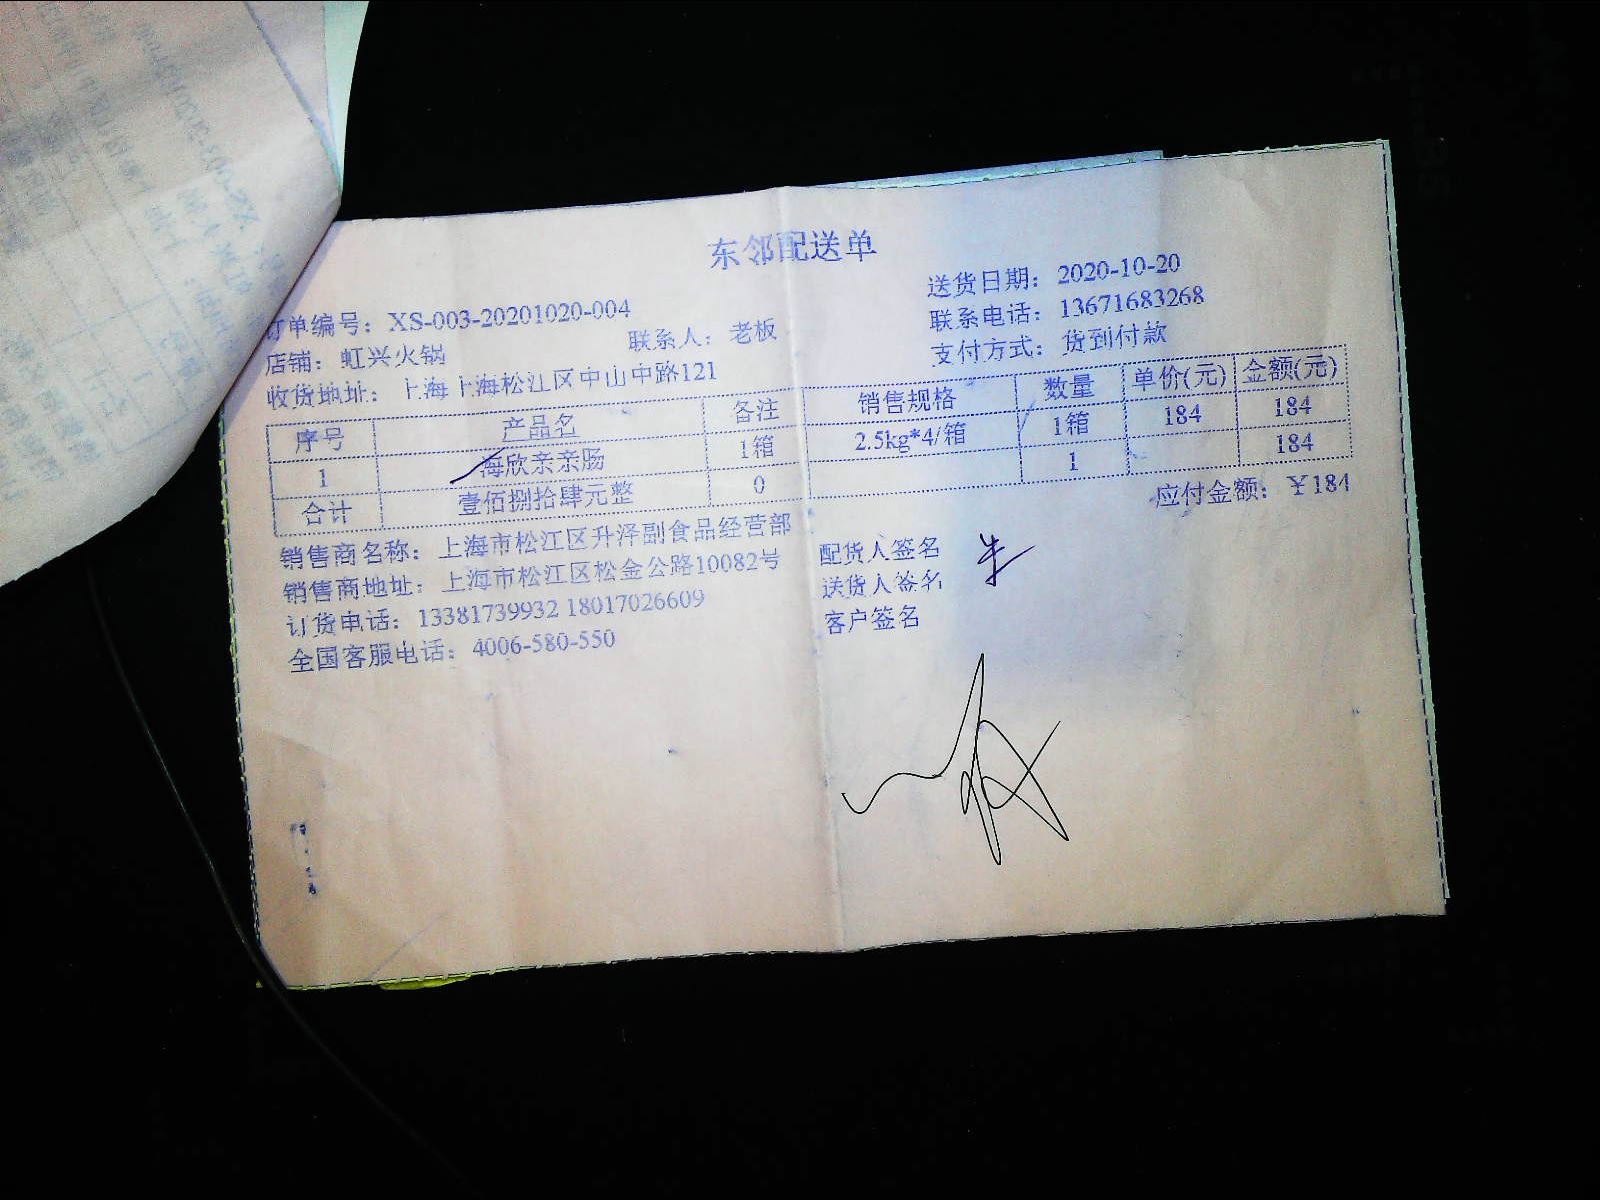 东邻配送单
订单编号：XS-003-20201020-004 送货日期：2020-10-20
店铺：虹兴火锅 联系人：老板 联系电话：13671683268
收货地址：上海上海松江区中山中路121 支付方式：货到付款
序号 产品名 备注 销售规格 数量 单价(元) 金额(元)
1 海欣亲亲肠 1箱 2.5kg*4/箱 1箱 184 184
合计 壹佰捌拾肆元整 0 1 184
应付金额：￥184
销售商名称：上海市松江区升泽副食品经营部 配货人签名
销售商地址：上海市松江区松金公路10082号 送货人签名
订货电话：13381739932 18017026609 客户签名
全国客服电话：4006-580-550